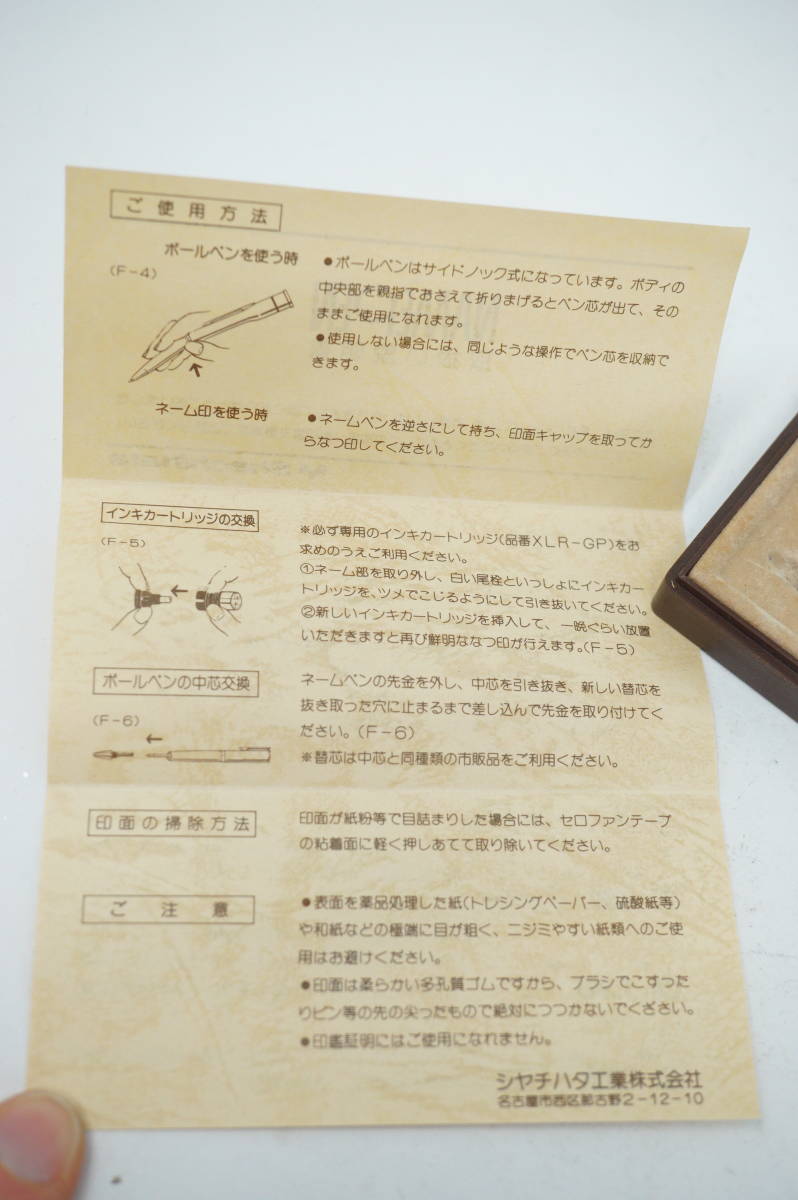 ご使用方法
ボールペンを使う時
(F-4)
●ボールペンはサイドノック式になっています。ボディの
中央部を親指でおさえて折りまげるとペン芯が出て、その
ままご使用になれます。
●使用しない場合には、同じような操作でペン芯を収納で
きます。
ネーム印を使う時
●ネームペンを逆さにして持ち、印面キャップを取ってか
らなつ印してください。
インキカートリッジの交換
(F-5)
※必ず専用のインキカートリッジ(品番XLR-GP)をお
求めのうえご利用ください。
①ネーム部を取り外し、白い尾栓といっしょにインキカー
トリッジを、ツメでこじるようにして引き抜いてください。
②新しいインキカートリッジを挿入して、一晩ぐらい放置
いただきますと再び鮮明ななつ印が行えます。(F-5)
ボールペンの中芯交換
(F-6)
ネームペンの先金を外し、中芯を引き抜き、新しい替芯を
抜き取った穴に止まるまで差し込んで先金を取り付けてく
ださい。(F-6)
※替芯は中芯と同種類の市販品をご利用ください。
印面の掃除方法
印面が紙粉等で目詰まりした場合には、セロファンテープ
の粘着面に軽く押しあてて取り除いてください。
ご注意
●表面を薬品処理した紙(トレシングペーパー、硫酸紙等)
や和紙などの極端に目が粗く、ニジミやすい紙類へのご使
用はお避けください。
●印面は柔らかい多孔質ゴムですから、ブラシでこすった
りピン等の先の尖ったもので絶対につつかないでくざさい。
●印鑑証明にはご使用になれません。
シヤチハタ工業株式会社
名古屋市西区那古野2-12-10